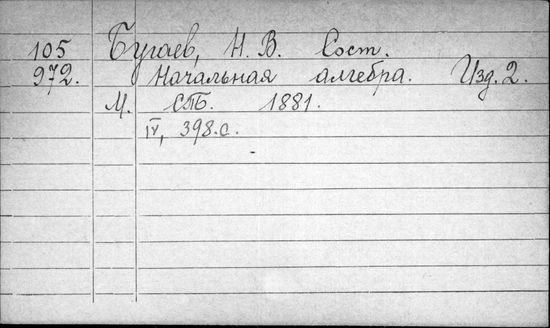 105 Бугаев, Н. В. Сост.
972. Начальная алгебра. Изд. 2.
М. 1881.
IV, 398.с.